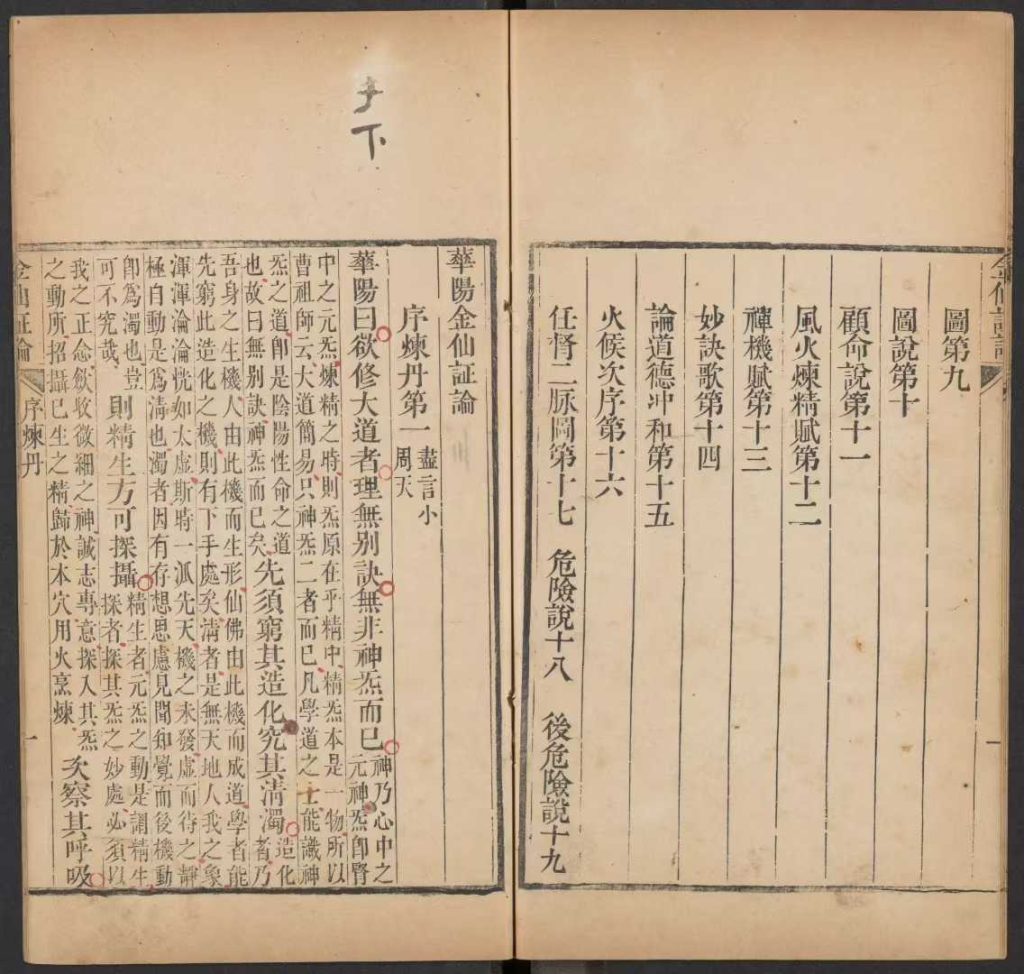 金仙証論
圖第九
圖說第十
顧命說第十一
風火煉精賦第十二
禪機賦第十三
妙訣歌第十四
論道德冲和第十五
火候次序第十六
任督二脉圖第十七　危險說十八　後危險說十九
一
下
華陽金仙証論
序煉丹第一
盡言小
周天
華陽曰欲修大道者理無别訣無非神炁而已
神乃心中之
元神炁即腎
中之元炁煉精之時則炁原在乎精中精炁本是一物所以
曹祖師云大道簡易只神炁二者而已凡學道之士能識神
炁之道即是陰陽性命之道
也故曰無别訣神炁而已矣
先須窮其造化究其清濁
造化
者乃
吾身之生機人由此機而生形仙佛由此機而成道學者能
先窮此造化之機則有下手處矣清者是無天地人我之象
渾渾淪淪恍如太虛斯時一派先天機之未發虛而待之靜
極自動是爲清也濁者因有存想思慮見聞知覺而後機動
即爲濁也豈
可不究哉
則精生方可採攝
精生者元炁之動是謂精生
採者採其炁之妙處必須以
我之正念歛收微細之神誠志專意採入其炁
之動所招攝已生之精歸於本穴用火烹煉
次察其呼吸
金仙証論
序煉丹
一